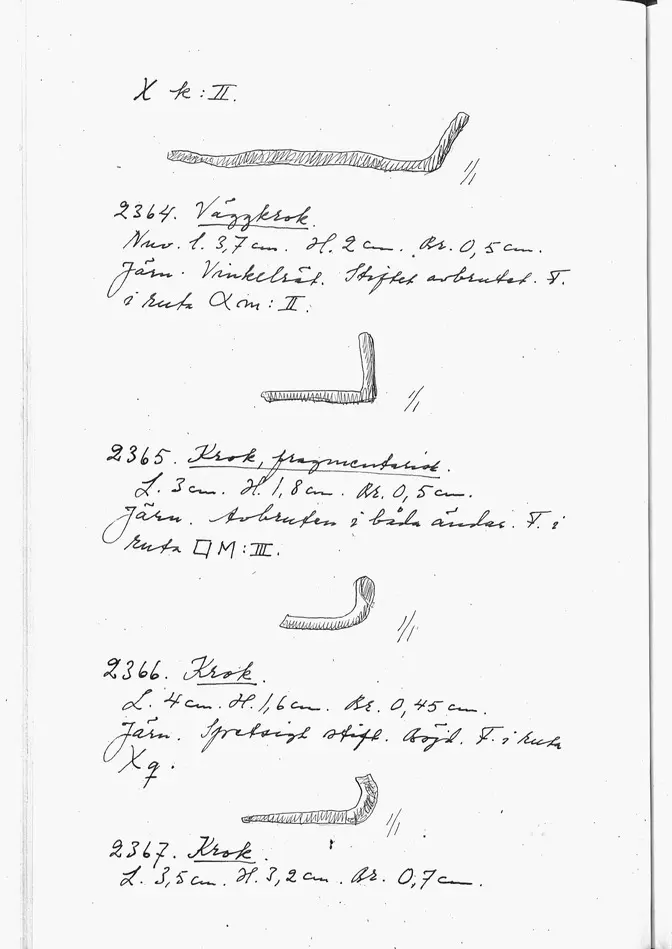 X k:II.
1/1
2364. Väggkrok.
Nuv. l. 3,7 cm. H. 2 cm. Br. 0,5 cm.
Järn. Vinkelrät. Stiftet avbrutet. F.
i ruta α m:II.
1/1
2365. Krok, fragmentarisk.
L. 3 cm. H. 1,8 cm. Br. 0,5 cm.
Järn. Avbruten i båda ändar. F. i
ruta □ M:III.
1/1
2366. Krok.
L. 4 cm. H. 1,6 cm. Br. 0,45 cm.
Järn. Spetsigt stift. Böjd. F. i ruta
X q.
1/1
2367. Krok.
L. 3,5 cm. H. 3,2 cm. Br. 0,7 cm.